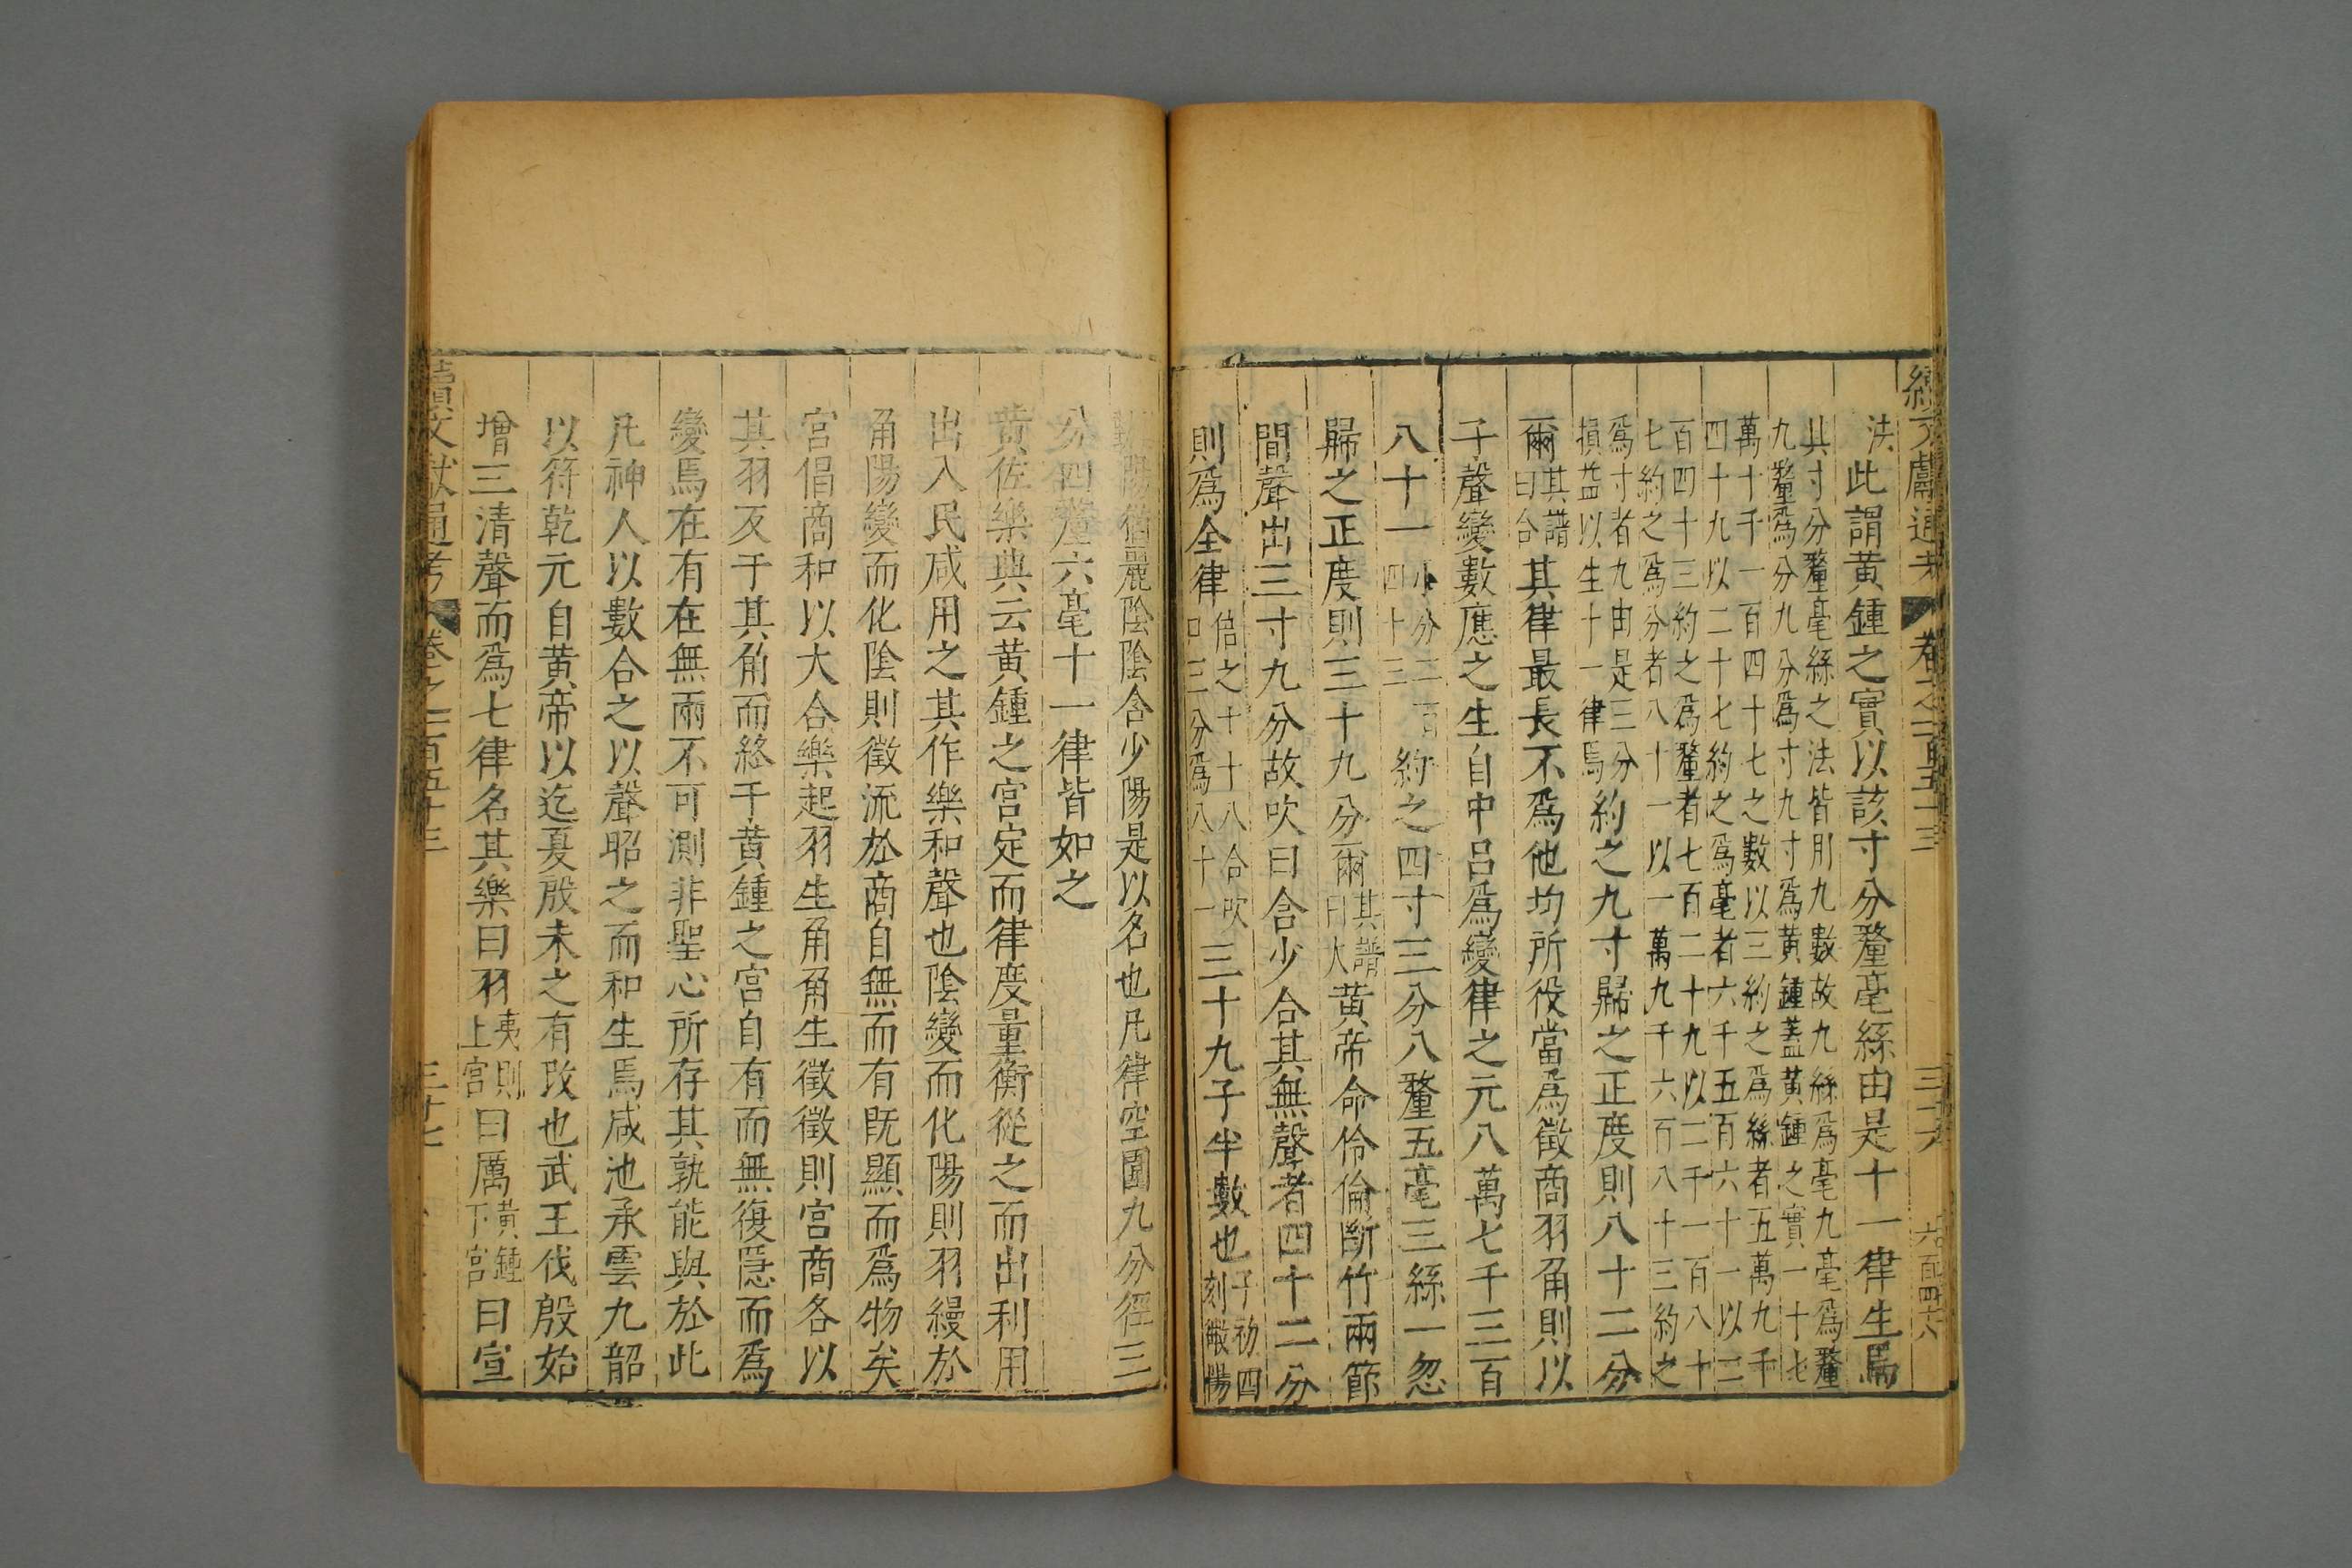 續文獻通考 卷之一百五十三 三十六 六百四六
法此謂黃鍾之實以該寸分釐毫絲由是十一律生焉
其寸分釐毫絲之法皆用九數故九絲爲毫九毫爲釐
九釐爲分九分爲寸九寸爲黃鍾蓋黃鍾之實一十七
萬十千一百四十七之數以三約之爲絲者五萬九千
四十九以二十七約之爲毫者六千五百六十一以二
百四十三約之爲釐者七百二十九以二千一百八十
七約之爲分者八十一以一萬九千六百八十三約之
爲寸者九由是三分
損益以生十一律焉
約之九寸歸之正度則八十二分
爾其譜曰合其律最長不爲他均所役當爲徵商羽角則以
子聲變數應之生自中呂爲變律之元八萬七千三百
八十一小分二百四十三約之四寸三分八釐五毫三絲一忽
歸之正度則三十九分爾其譜曰大黃帝命伶倫斷竹兩節
間聲出三寸九分故吹曰含少合其無聲者四十二分
則爲全律倍之七十八合吹口三分爲八十一三十九子半數也子初四刻微陽
陽伯麗陰陰含少陽是以名也凡律空圍九分徑三
分四釐六毫十一律皆如之
黃佐樂典云黃鍾之宮定而律度量衡從之而出利用
出入民咸用之其作樂和聲也陰變而化陽則羽縵於
角陽變而化陰則徵流於商自無而有既顯而爲物矣
宮倡商和以大合樂起羽生角角生徵徵則宮商各以
其羽反于其角而終于黃鍾之宮自有而無復隱而爲
變焉在有在無兩不可測非聖心所存其孰能與於此
凡神人以數合之以聲昭之而和生焉咸池承雲九韶
以符乾元自黃帝以迄夏殷未之有改也武王伐殷始
增三清聲而爲七律名其樂曰羽夷則上宮曰厲黃鍾下宮曰宣
續文獻通考 卷之一百五十三 三十七